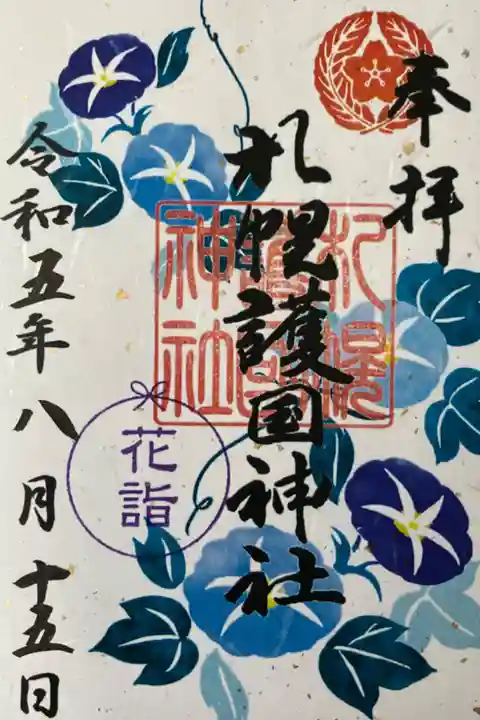 奉拝
札幌護国神社
札幌護国神社
花詣
令和五年八月十五日